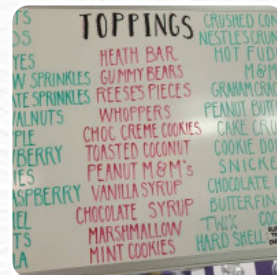 TOPPINGS
TS
DS
YES
W SPRINKLES
ATE SPRINKLES
ALNUTS
PLE
BERRY
IES
ASPBERRY
EL
TS
LA
HEATH BAR
GUMMY BEARS
REESE'S PIECES
WHOPPERS
CHOC CREME COOKIES
TOASTED COCONUT
PEANUT M&M's
VANILLA SYRUP
CHOCOLATE SYRUP
MARSHMALLOW
MINT COOKIES
CRUSHED CON
NESTLE'S CRUN
HOT FUD
M&M
GRAHAM CRAC
PEANUT BUT
CAKE CRU
COOKIE DO
SNICKE
CHOCOLATE
BUTTERFIN
TWIX CO
HARD SHELL